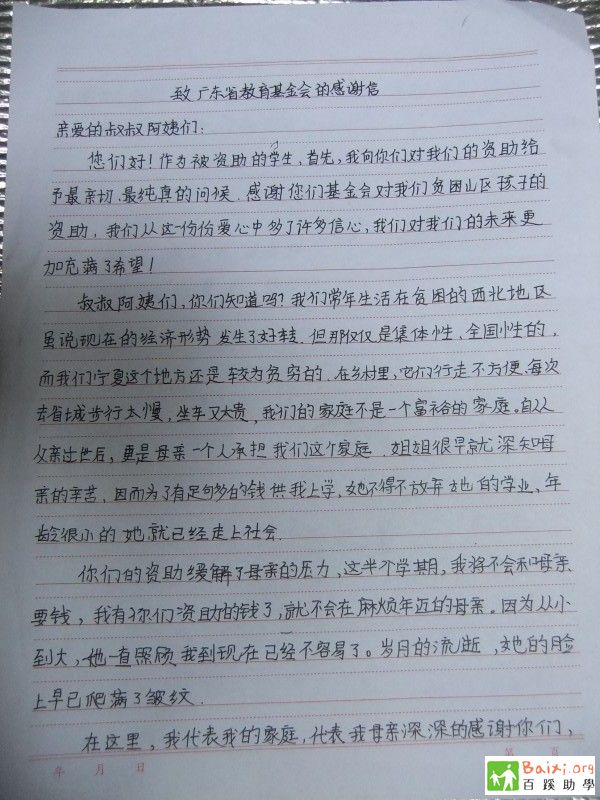 致广东省教育基金会的感谢信
亲爱的叔叔阿姨们：
您们好！作为被资助的学生，首先，我向你们对我们的资助给
予最亲切、最纯真的问候．感谢您们基金会对我们贫困山区孩子的
资助，我们从这一份份爱心中多了许多信心，我们对我们的未来更
加充满了希望！
叔叔阿姨们，你们知道吗？我们常年生活在贫困的西北地区
虽说现在的经济形势发生了好转．但那仅仅是集体性、全国性的，
而我们宁夏这个地方还是较为贫穷的．在乡村里，它们行走不方便，每次
去省城步行太慢，坐车又太贵，我们的家庭不是一个富裕的家庭。自从
父亲去世后，更是母亲一个人承担我们这个家庭．姐姐很早就深知母
亲的辛苦，因而为了有足够多的钱供我上学，她不得不放弃她的学业，年
龄很小的她就已经走上社会．
你们的资助缓解了母亲的压力，这半个学期，我将不会和母亲
要钱，我有你们资助的钱了，就不会在麻烦年迈的母亲。因为从小
到大，她一直照顾我到现在已经不容易了。岁月的流逝，她的脸
上早已爬满了皱纹．
在这里，我代表我的家庭，代表我母亲深深的感谢你们，
年 月 日 第 页
Baixi.org
百蹊助學